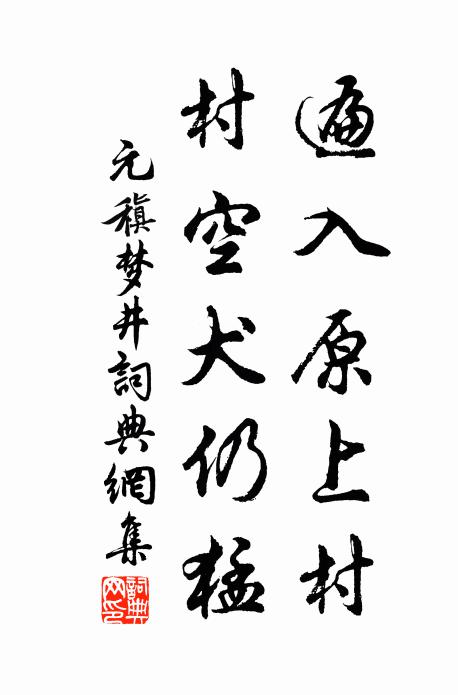 遍入原上村
村空犬仍猛
元稹梦井詞典網集
詞典網印